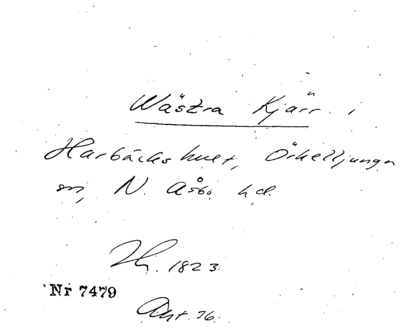 Wästra Kjärr i
Harbäckshult, Örkelljunga
sn, N. Åsbo hd.
Th. 1823.
Nr 7479
Ant. 76.